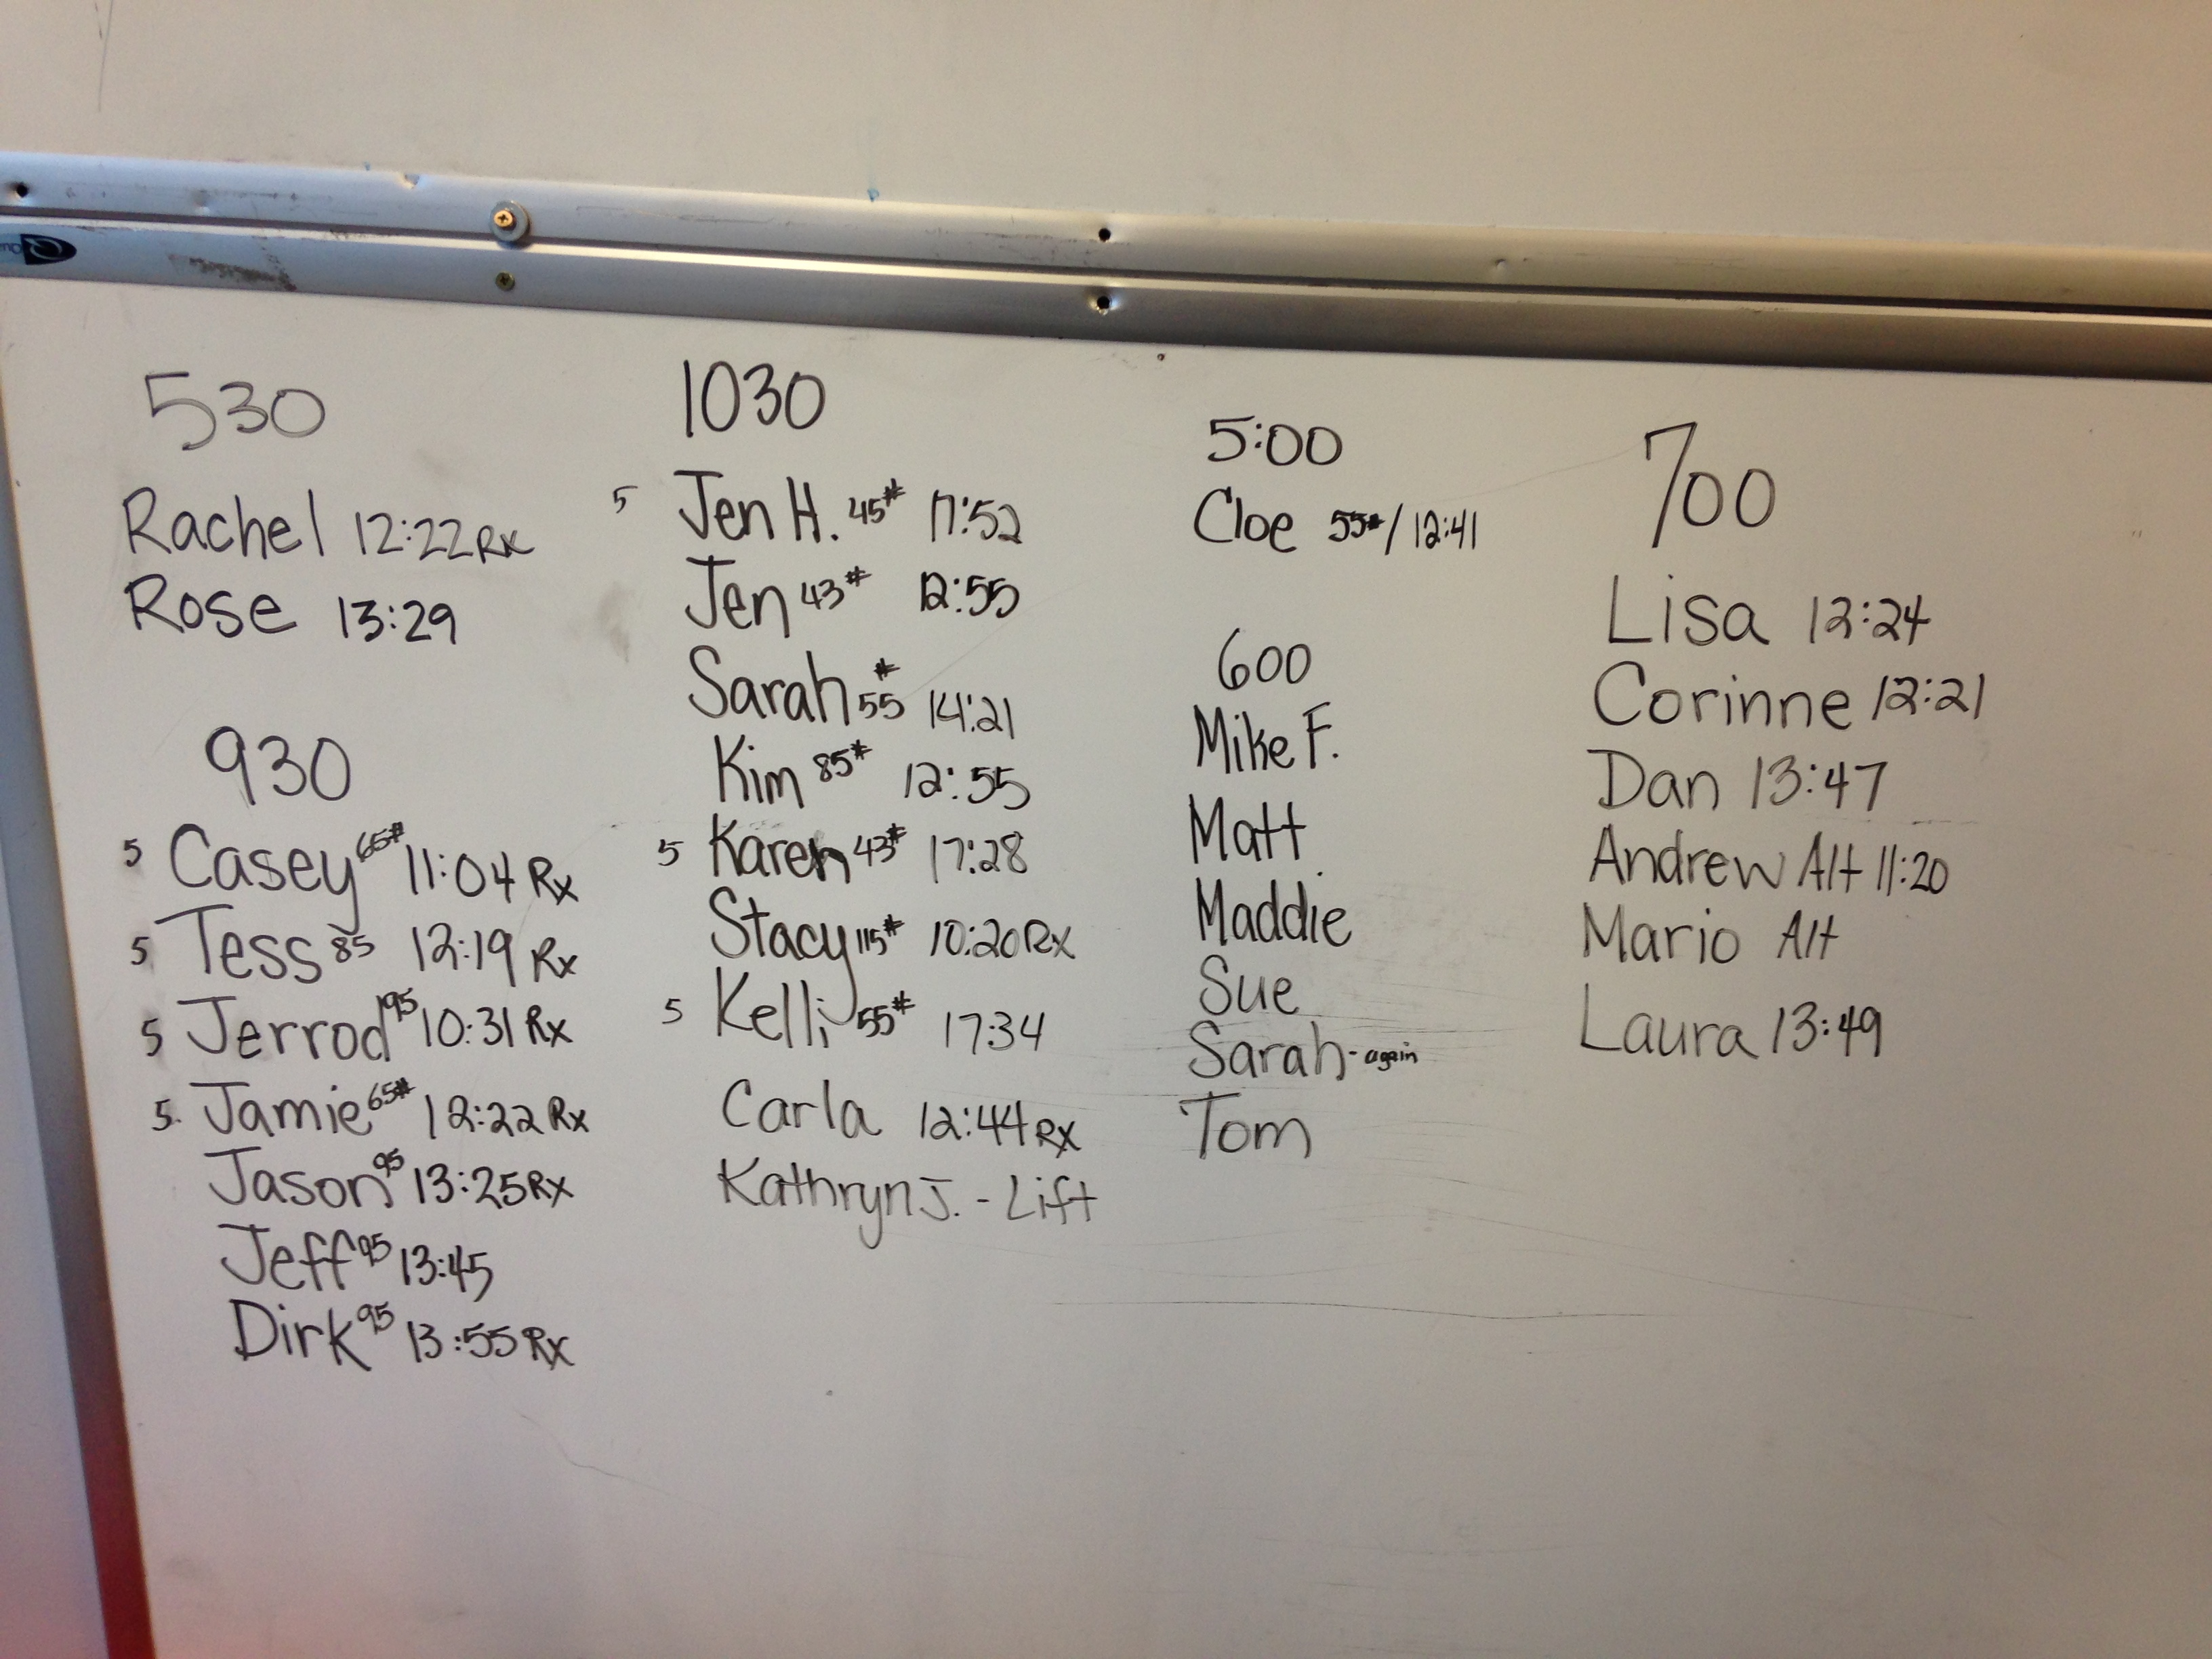 530
Rachel 12:22 Rx
Rose 13:29
930
5 Casey 65# 11:04 Rx
5 Tess 85 12:19 Rx
5 Jerrod 195 10:31 Rx
5. Jamie 65# 12:22 Rx
Jason 95 13:25 Rx
Jeff 95 13:45
Dirk 95 13:55 Rx
1030
5 Jen H. 45# 17:52
Jen 43# 12:55
Sarah 55# 14:21
Kim 85# 12:55
5 Karen 43# 17:28
Stacy 115# 10:20 Rx
5 Kelli 55# 17:34
Carla 12:44 Rx
Kathryn J. - Lift
5:00
Cloe 55# / 12:41
600
Mike F.
Matt
Maddie
Sue
Sarah - again
Tom
700
Lisa 12:24
Corinne 12:21
Dan 13:47
Andrew Alt 11:20
Mario Alt
Laura 13:49